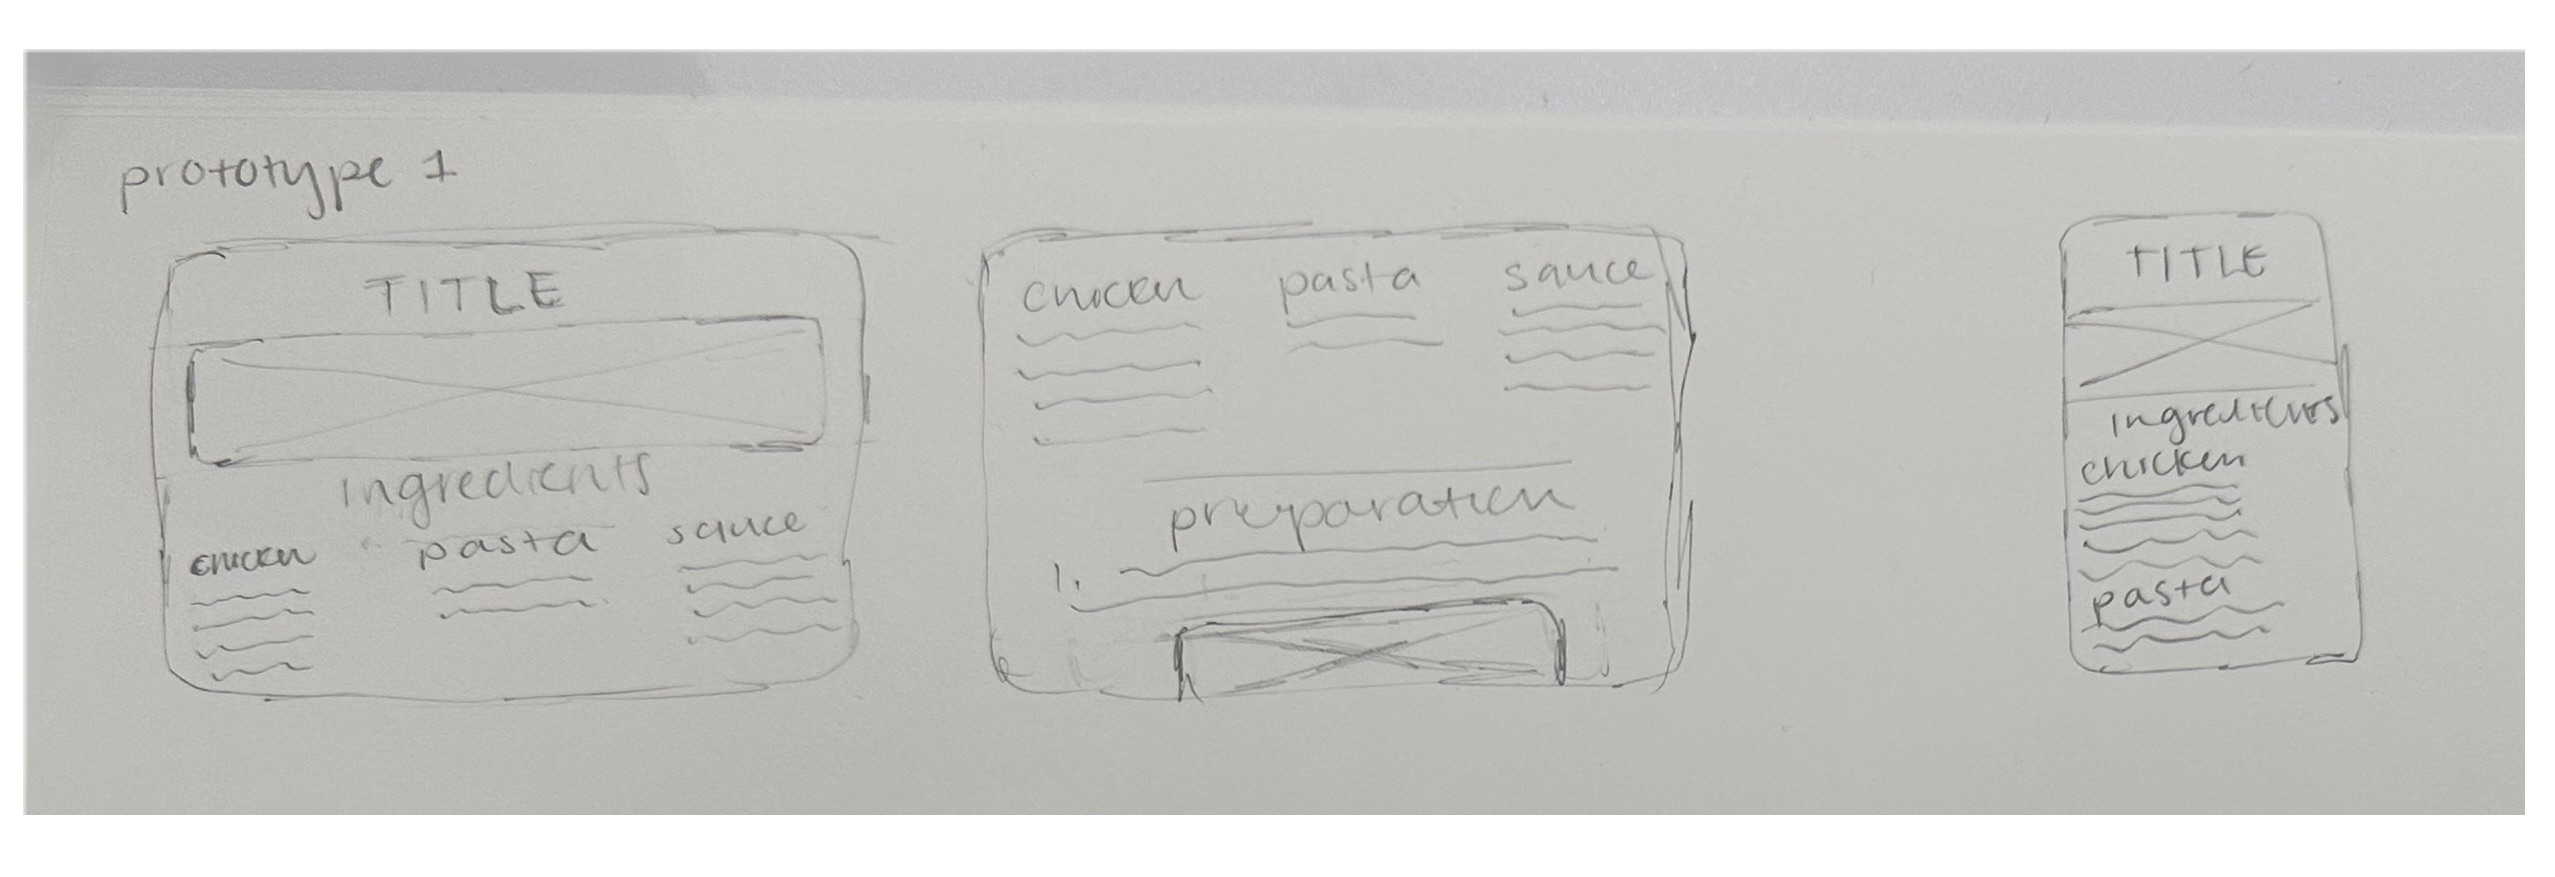 prototype 1
TITLE
ingredients
chicken pasta sauce
chicken pasta sauce
preparation
1.
TITLE
ingredients
chicken
pasta